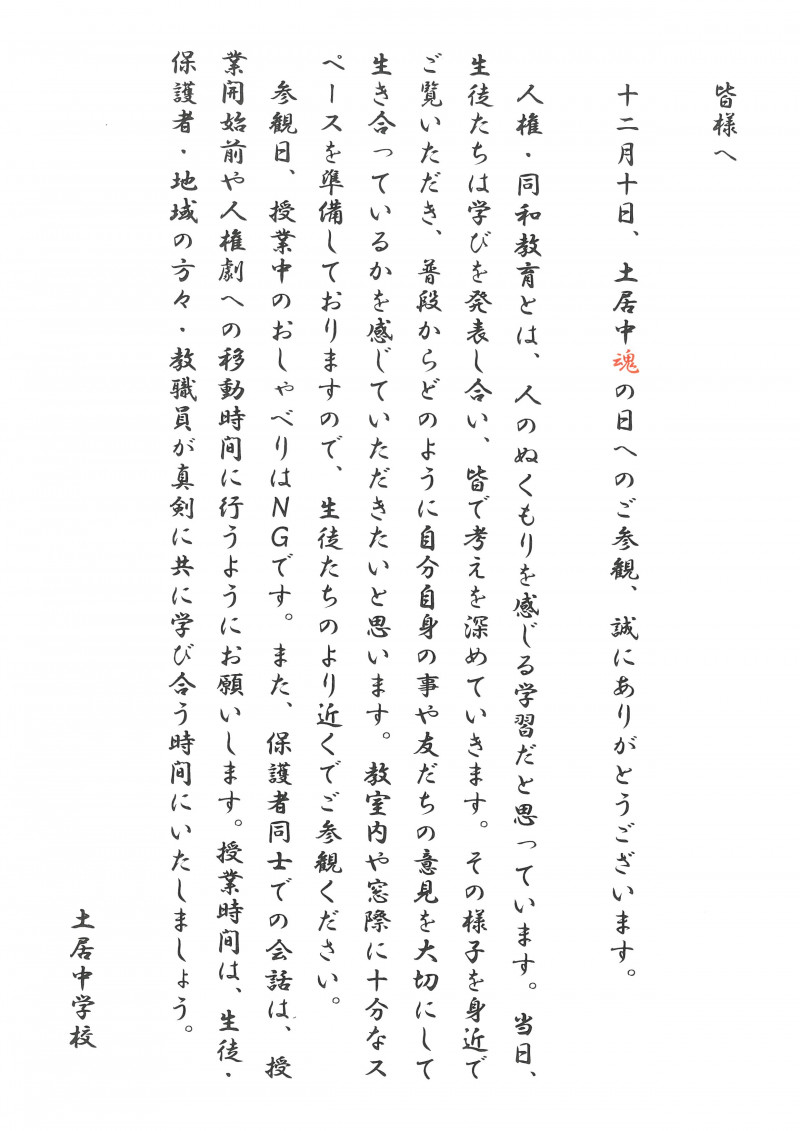 皆様へ
十二月十日、土居中魂の日へのご参観、誠にありがとうございます。
人権・同和教育とは、人のぬくもりを感じる学習だと思っています。当日、
生徒たちは学びを発表し合い、皆で考えを深めていきます。その様子を身近で
ご覧いただき、普段からどのように自分自身の事や友だちの意見を大切にして
生き合っているかを感じていただきたいと思います。教室内や窓際に十分なス
ペースを準備しておりますので、生徒たちのより近くでご参観ください。
参観日、授業中のおしゃべりはNGです。また、保護者同士での会話は、授
業開始前や人権劇への移動時間に行うようにお願いします。授業時間は、生徒・
保護者・地域の方々・教職員が真剣に共に学び合う時間にいたしましょう。
土居中学校